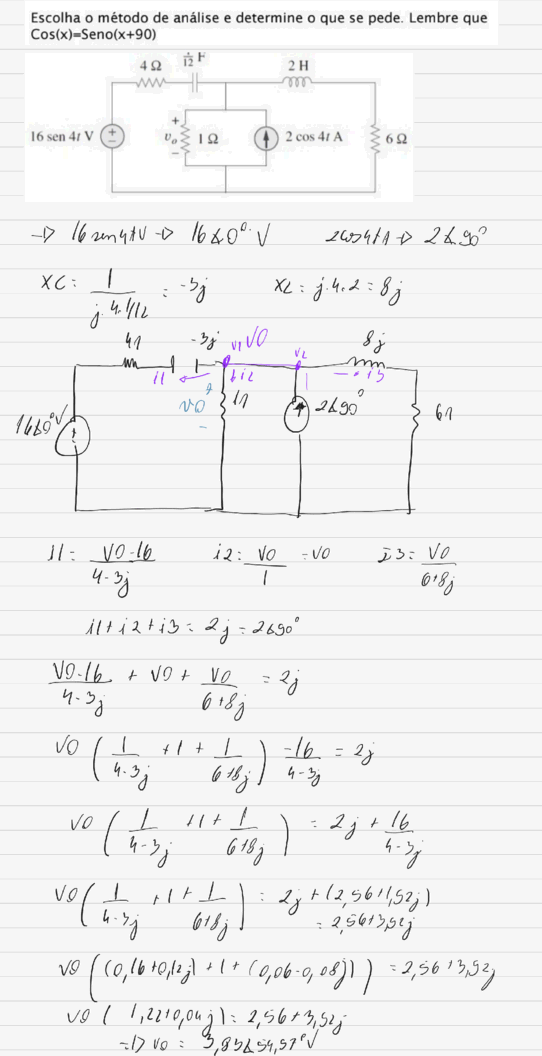 Escolha o método de análise e determine o que se pede. Lembre que
Cos(x)=Seno(x+90)
4 Ω 1/12 F 2 H
16 sen 4t V + − + vo − 1 Ω 2 cos 4t A 6 Ω
→ 16 sen4tV → 16∠0°. V 2cos4tA → 2∠90°
XC = 1/(j.4.1/12) = -3j XL = j.4.2 = 8j
4Ω -3j V1 VO V2 8j
i1 i2 i3
16∠0°V VO - 1Ω 2∠90° 6Ω
i1 = (VO-16)/(4-3j) i2 = VO/1 = VO i3 = VO/(6+8j)
i1+i2+i3 = 2j = 2∠90°
(VO-16)/(4-3j) + VO + VO/(6+8j) = 2j
VO (1/(4-3j) + 1 + 1/(6+8j)) -16/(4-3j) = 2j
VO (1/(4-3j) + 1 + 1/(6+8j)) = 2j + 16/(4-3j)
VO (1/(4-3j) + 1 + 1/(6+8j)) = 2j + (2,56+1,52j)
= 2,56+3,52j
VO ((0,16+0,12j) + 1 + (0,06-0,08j)) = 2,56+3,52j
VO (1,22+0,04j) = 2,56+3,52j
=D vo = 3,83∠54,57°V